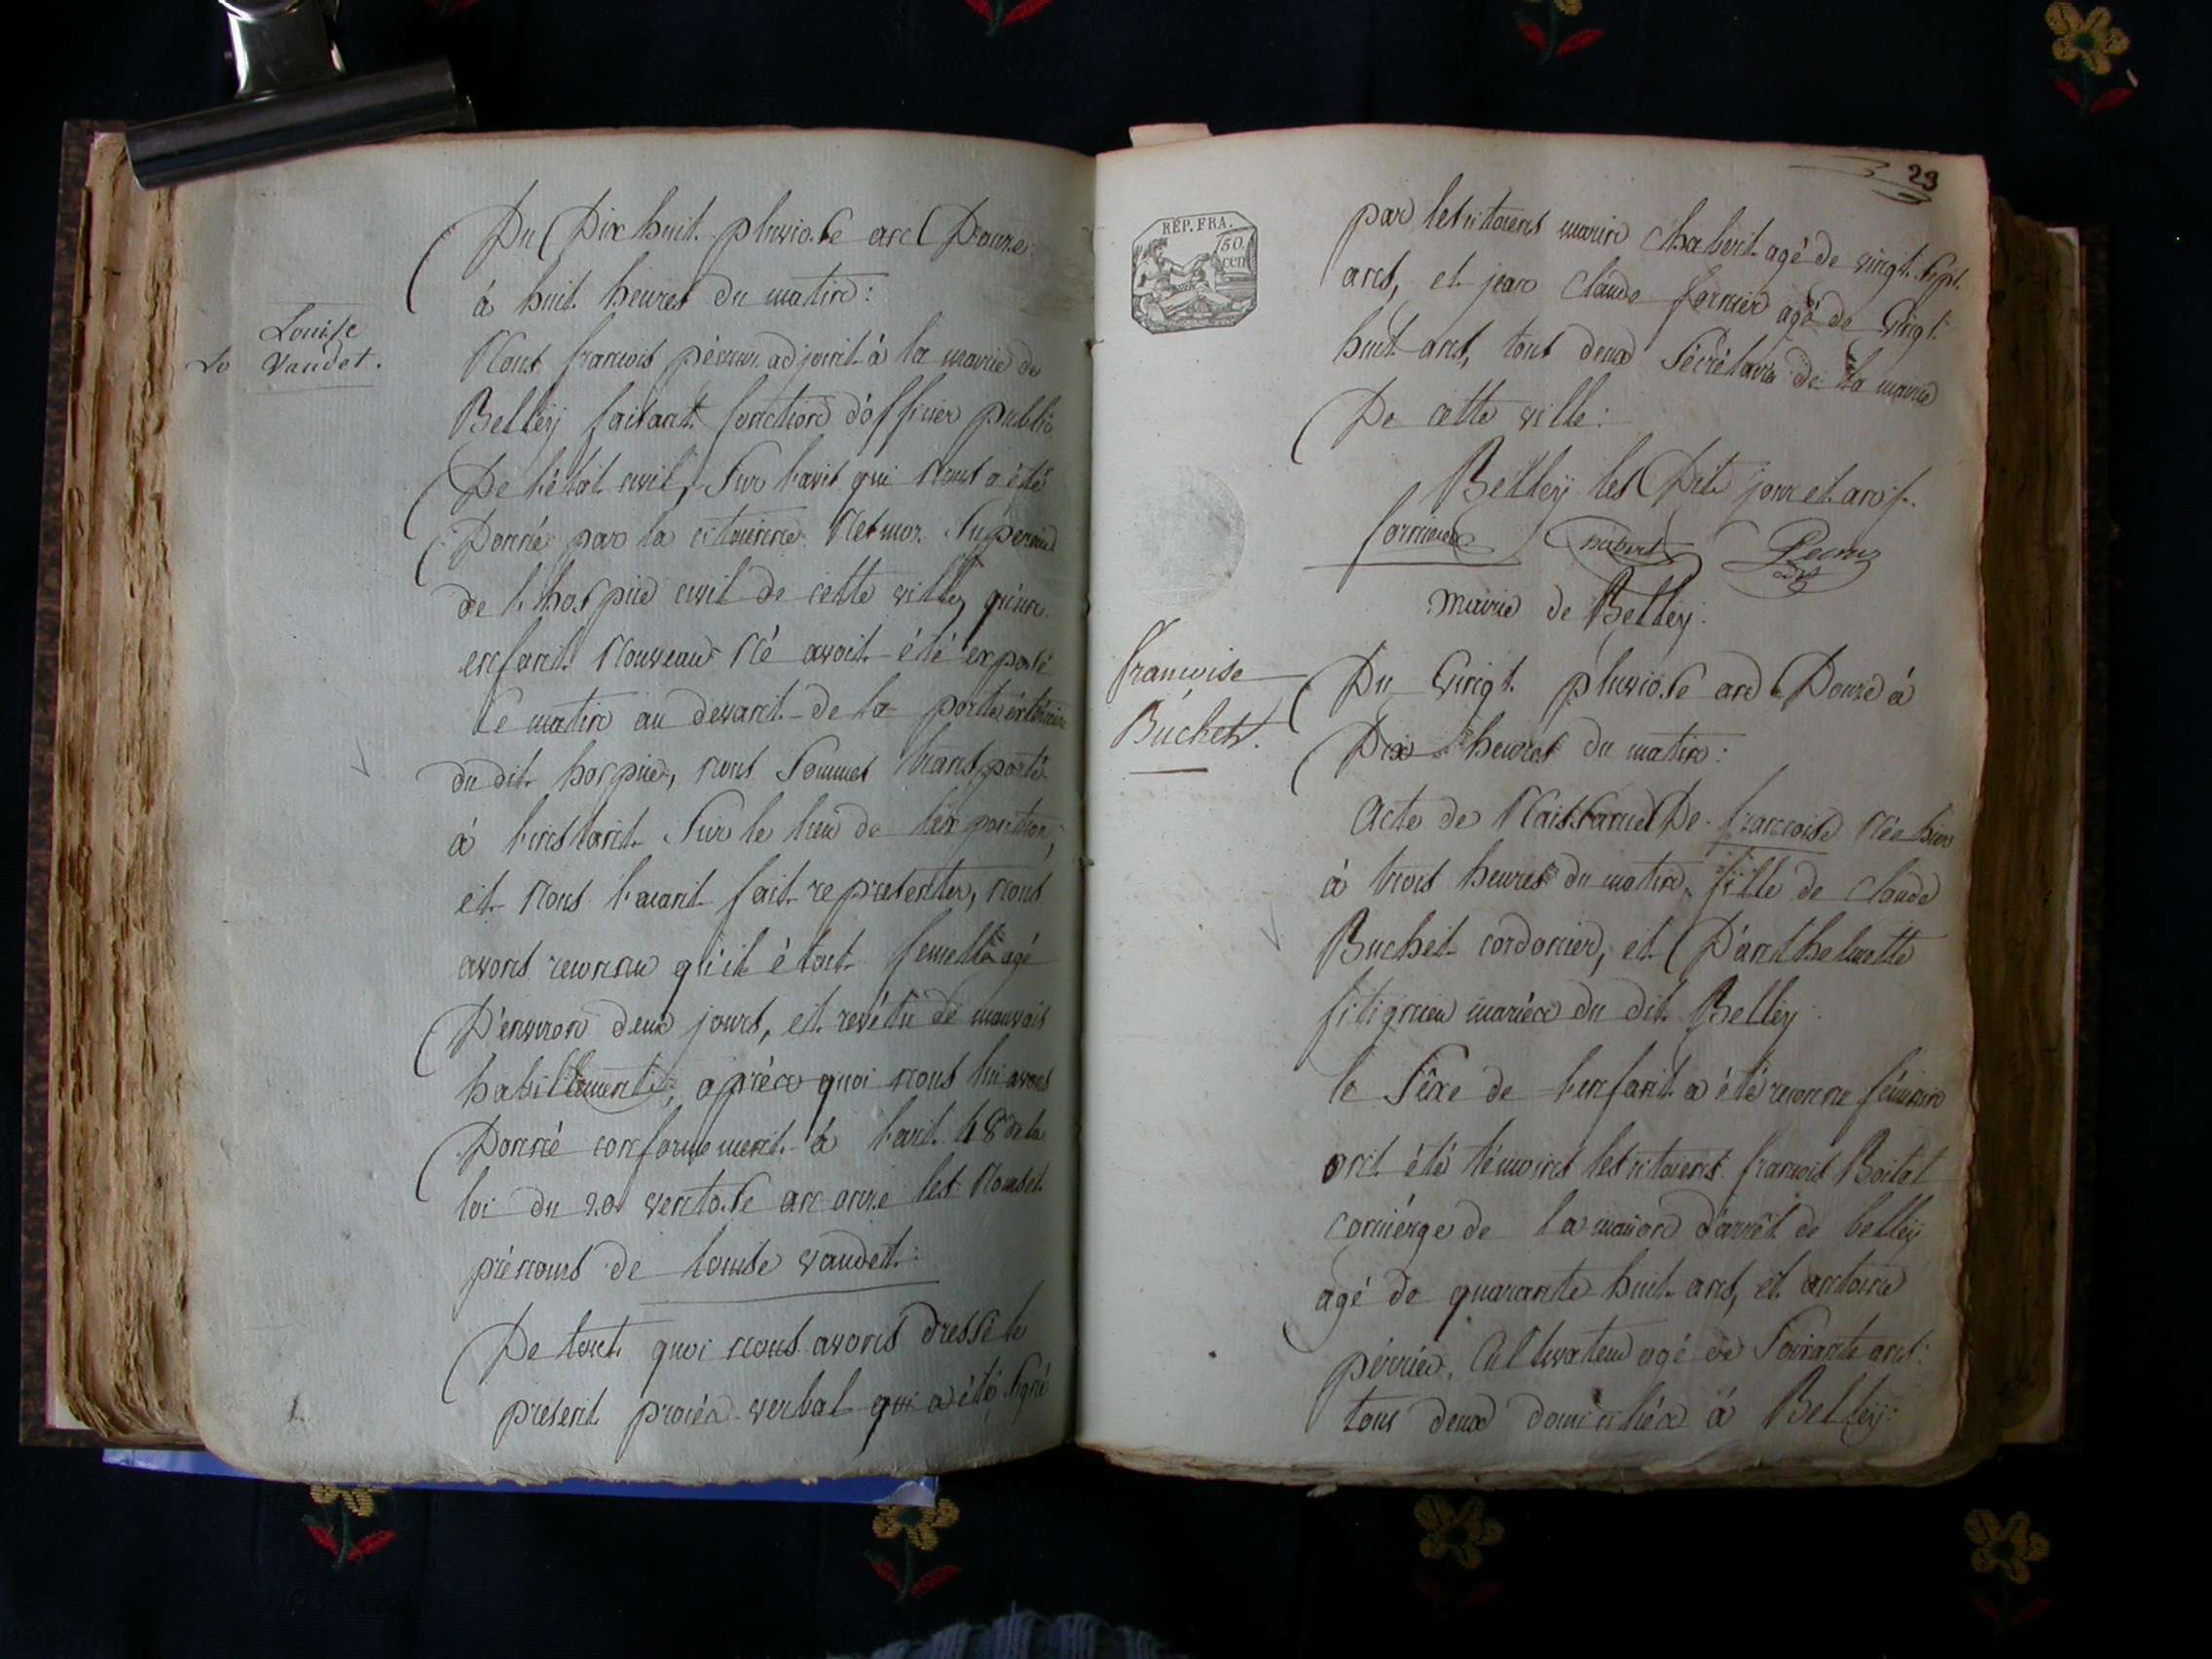 Louise
Vaudet.
Du Dix huit pluviose an Douze
à huit heures du matin:
Nous francois adjoint à la mairie de
Belley faisant fonction d'officier public
De l'état civil, Sur l'avis qui Nous a été
Donné par la citoienne Superieure
de l'hospice civil de cette ville, qu'un
enfant Nouveau Né avoit été exposé
Ce matin au devant de la porte extérieure
du dit hospice, nous Sommes transporté
à l'instant Sur le lieu de l'exposition;
et Nous l'aiant fait representer, Nous
avons reconnu qu'il étoit femelle agé
D'environ deux jours, et revétu de mauvais
habillements; après quoi nous lui avons
Donné conformement à l'art. 48 de la
loi du 20 ventose an onze les Noms et
prénoms de louise vaudet:
De tout quoi nous avons dressé le
present procès verbal qui a été signé
29
RÉP. FRA.
50
cen
par les citoiens marin Chabert agé de vingt Sept
ans, et jean Claude fornier agé de Vingt
huit ans, tous deux Sécrétaires de la mairie
De cette ville:
Belley les Dits jour et an
mairie de Belley.
francoise
Buchet.
Du Vingt pluviose an Douze à
Dix heures du matin:
Acte de Naissance De francoise Née hier
à trois heures du matin, fille de Claude
Buchet cordonier, et D'anthelmette
fitignieu mariés du dit Belley
le Sêxe de l'enfant a été reconnu féminin
ont été témoins les citoiens francois
concièrge de la maison d'arrêt de belley
agé de quarante huit ans, et antoine
Cultivateur agé de Soixante ans:
tous deux domiciliés à Belley: